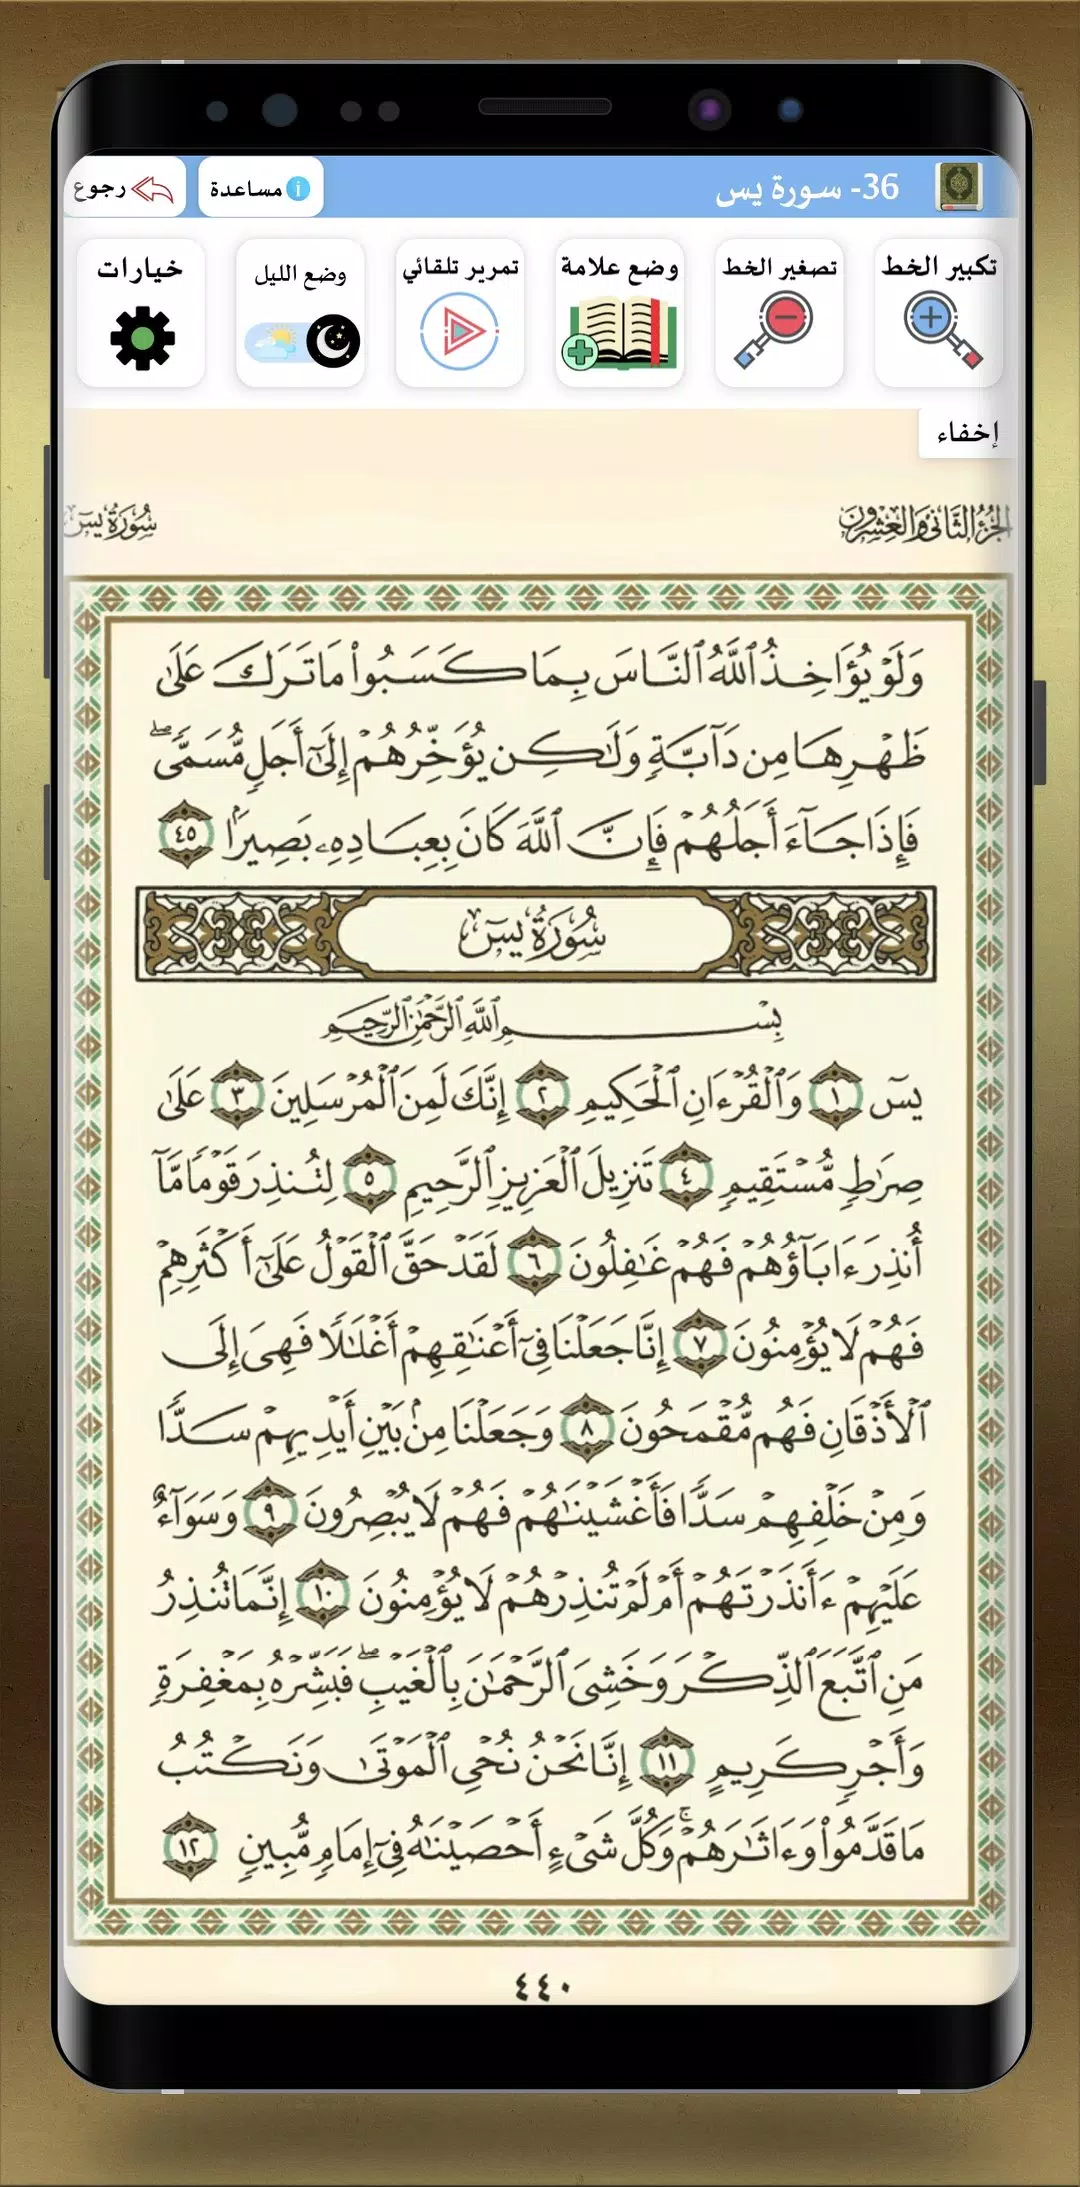 36- سورة يس
مساعدة
رجوع
تكبير الخط
تصغير الخط
وضع علامة
تمرير تلقائي
وضع الليل
خيارات
إخفاء
الجُزْءُ الثَّانِي وَالعِشْرُونَ
سُورَةُ يسٓ
وَلَوۡ يُؤَاخِذُ ٱللَّهُ ٱلنَّاسَ بِمَا كَسَبُواْ مَا تَرَكَ عَلَىٰ
ظَهۡرِهَا مِن دَآبَّةٖ وَلَٰكِن يُؤَخِّرُهُمۡ إِلَىٰٓ أَجَلٖ مُّسَمّٗىۖ
فَإِذَا جَآءَ أَجَلُهُمۡ فَإِنَّ ٱللَّهَ كَانَ بِعِبَادِهِۦ بَصِيرَۢا ٤٥
سُورَةُ يسٓ
بِسۡمِ ٱللَّهِ ٱلرَّحۡمَٰنِ ٱلرَّحِيمِ
يسٓ ١ وَٱلۡقُرۡءَانِ ٱلۡحَكِيمِ ٢ إِنَّكَ لَمِنَ ٱلۡمُرۡسَلِينَ ٣ عَلَىٰ
صِرَٰطٖ مُّسۡتَقِيمٖ ٤ تَنزِيلَ ٱلۡعَزِيزِ ٱلرَّحِيمِ ٥ لِتُنذِرَ قَوۡمٗا مَّآ
أُنذِرَ ءَابَآؤُهُمۡ فَهُمۡ غَٰفِلُونَ ٦ لَقَدۡ حَقَّ ٱلۡقَوۡلُ عَلَىٰٓ أَكۡثَرِهِمۡ
فَهُمۡ لَا يُؤۡمِنُونَ ٧ إِنَّا جَعَلۡنَا فِيٓ أَعۡنَٰقِهِمۡ أَغۡلَٰلٗا فَهِيَ إِلَى
ٱلۡأَذۡقَانِ فَهُم مُّقۡمَحُونَ ٨ وَجَعَلۡنَا مِنۢ بَيۡنِ أَيۡدِيهِمۡ سَدّٗا
وَمِنۡ خَلۡفِهِمۡ سَدّٗا فَأَغۡشَيۡنَٰهُمۡ فَهُمۡ لَا يُبۡصِرُونَ ٩ وَسَوَآءٌ
عَلَيۡهِمۡ ءَأَنذَرۡتَهُمۡ أَمۡ لَمۡ تُنذِرۡهُمۡ لَا يُؤۡمِنُونَ ١٠ إِنَّمَا تُنذِرُ
مَنِ ٱتَّبَعَ ٱلذِّكۡرَ وَخَشِيَ ٱلرَّحۡمَٰنَ بِٱلۡغَيۡبِۖ فَبَشِّرۡهُ بِمَغۡفِرَةٖ
وَأَجۡرٖ كَرِيمٍ ١١ إِنَّا نَحۡنُ نُحۡيِ ٱلۡمَوۡتَىٰ وَنَكۡتُبُ
مَا قَدَّمُواْ وَءَاثَٰرَهُمۡۚ وَكُلَّ شَيۡءٍ أَحۡصَيۡنَٰهُ فِيٓ إِمَامٖ مُّبِينٖ ١٢
٤٤٠